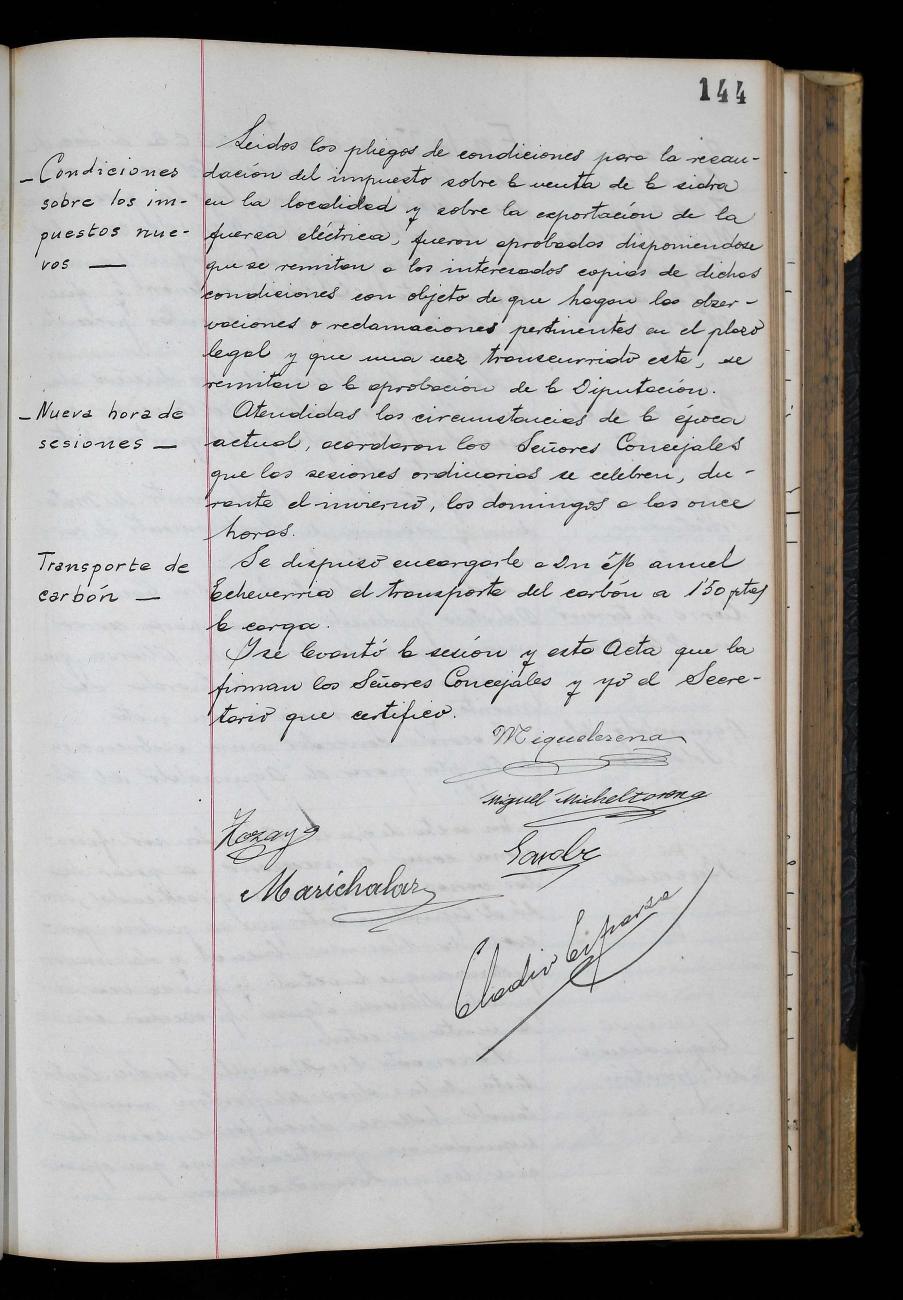 144
– Condiciones
sobre los im-
puestos nue-
vos —
Leidos los pliegos de condiciones para la recau-
dación del impuesto sobre la venta de la sidra
en la localidad y sobre la exportación de la
fuerza eléctrica, fueron aprobados disponiendose
que se remitan a los interesados copias de dichas
condiciones con objeto de que hagan las obser-
vaciones o reclamaciones pertinentes en el plazo
legal y que una vez transcurrido este, se
remitan a la aprobación de la Diputación.
– Nueva hora de
sesiones —
Atendidas las circunstancias de la época
actual, acordaron los Señores Concejales
que las sesiones ordinarias se celebren, du-
rante el invierno, los domingos a las once
horas.
Transporte de
carbón —
Se dispuso encargarle a Dn Manuel
Echeverria el transporte del carbón a 1'50 ptas
la carga.
Y se levantó la sesión y esta Acta que la
firman los Señores Concejales y yo el Secre-
tario que certifico.
Miquelerena
Miguel Micheltorena
Hozaya
Marichalar
Eladio Esparza